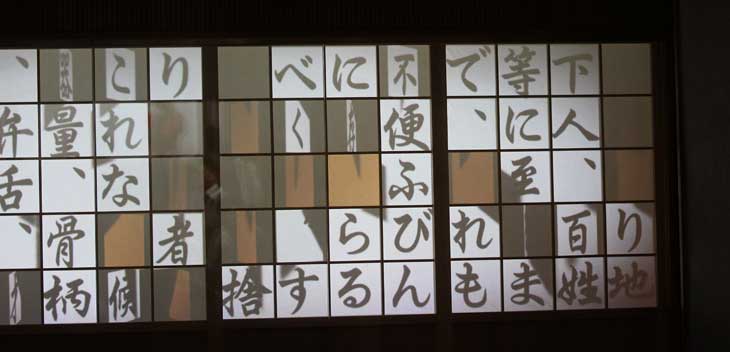 り地
下人、百姓
等に至ま
で、れも
不便ふびん
にらる
べく、す
捨
り者
これな候
量、骨柄
、弁舌、